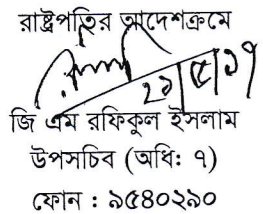 রাষ্ট্রপতির আদেশক্রমে
জি এম রফিকুল ইসলাম
উপসচিব (অধি: ৭)
ফোন : ৯৫৪০২৯০